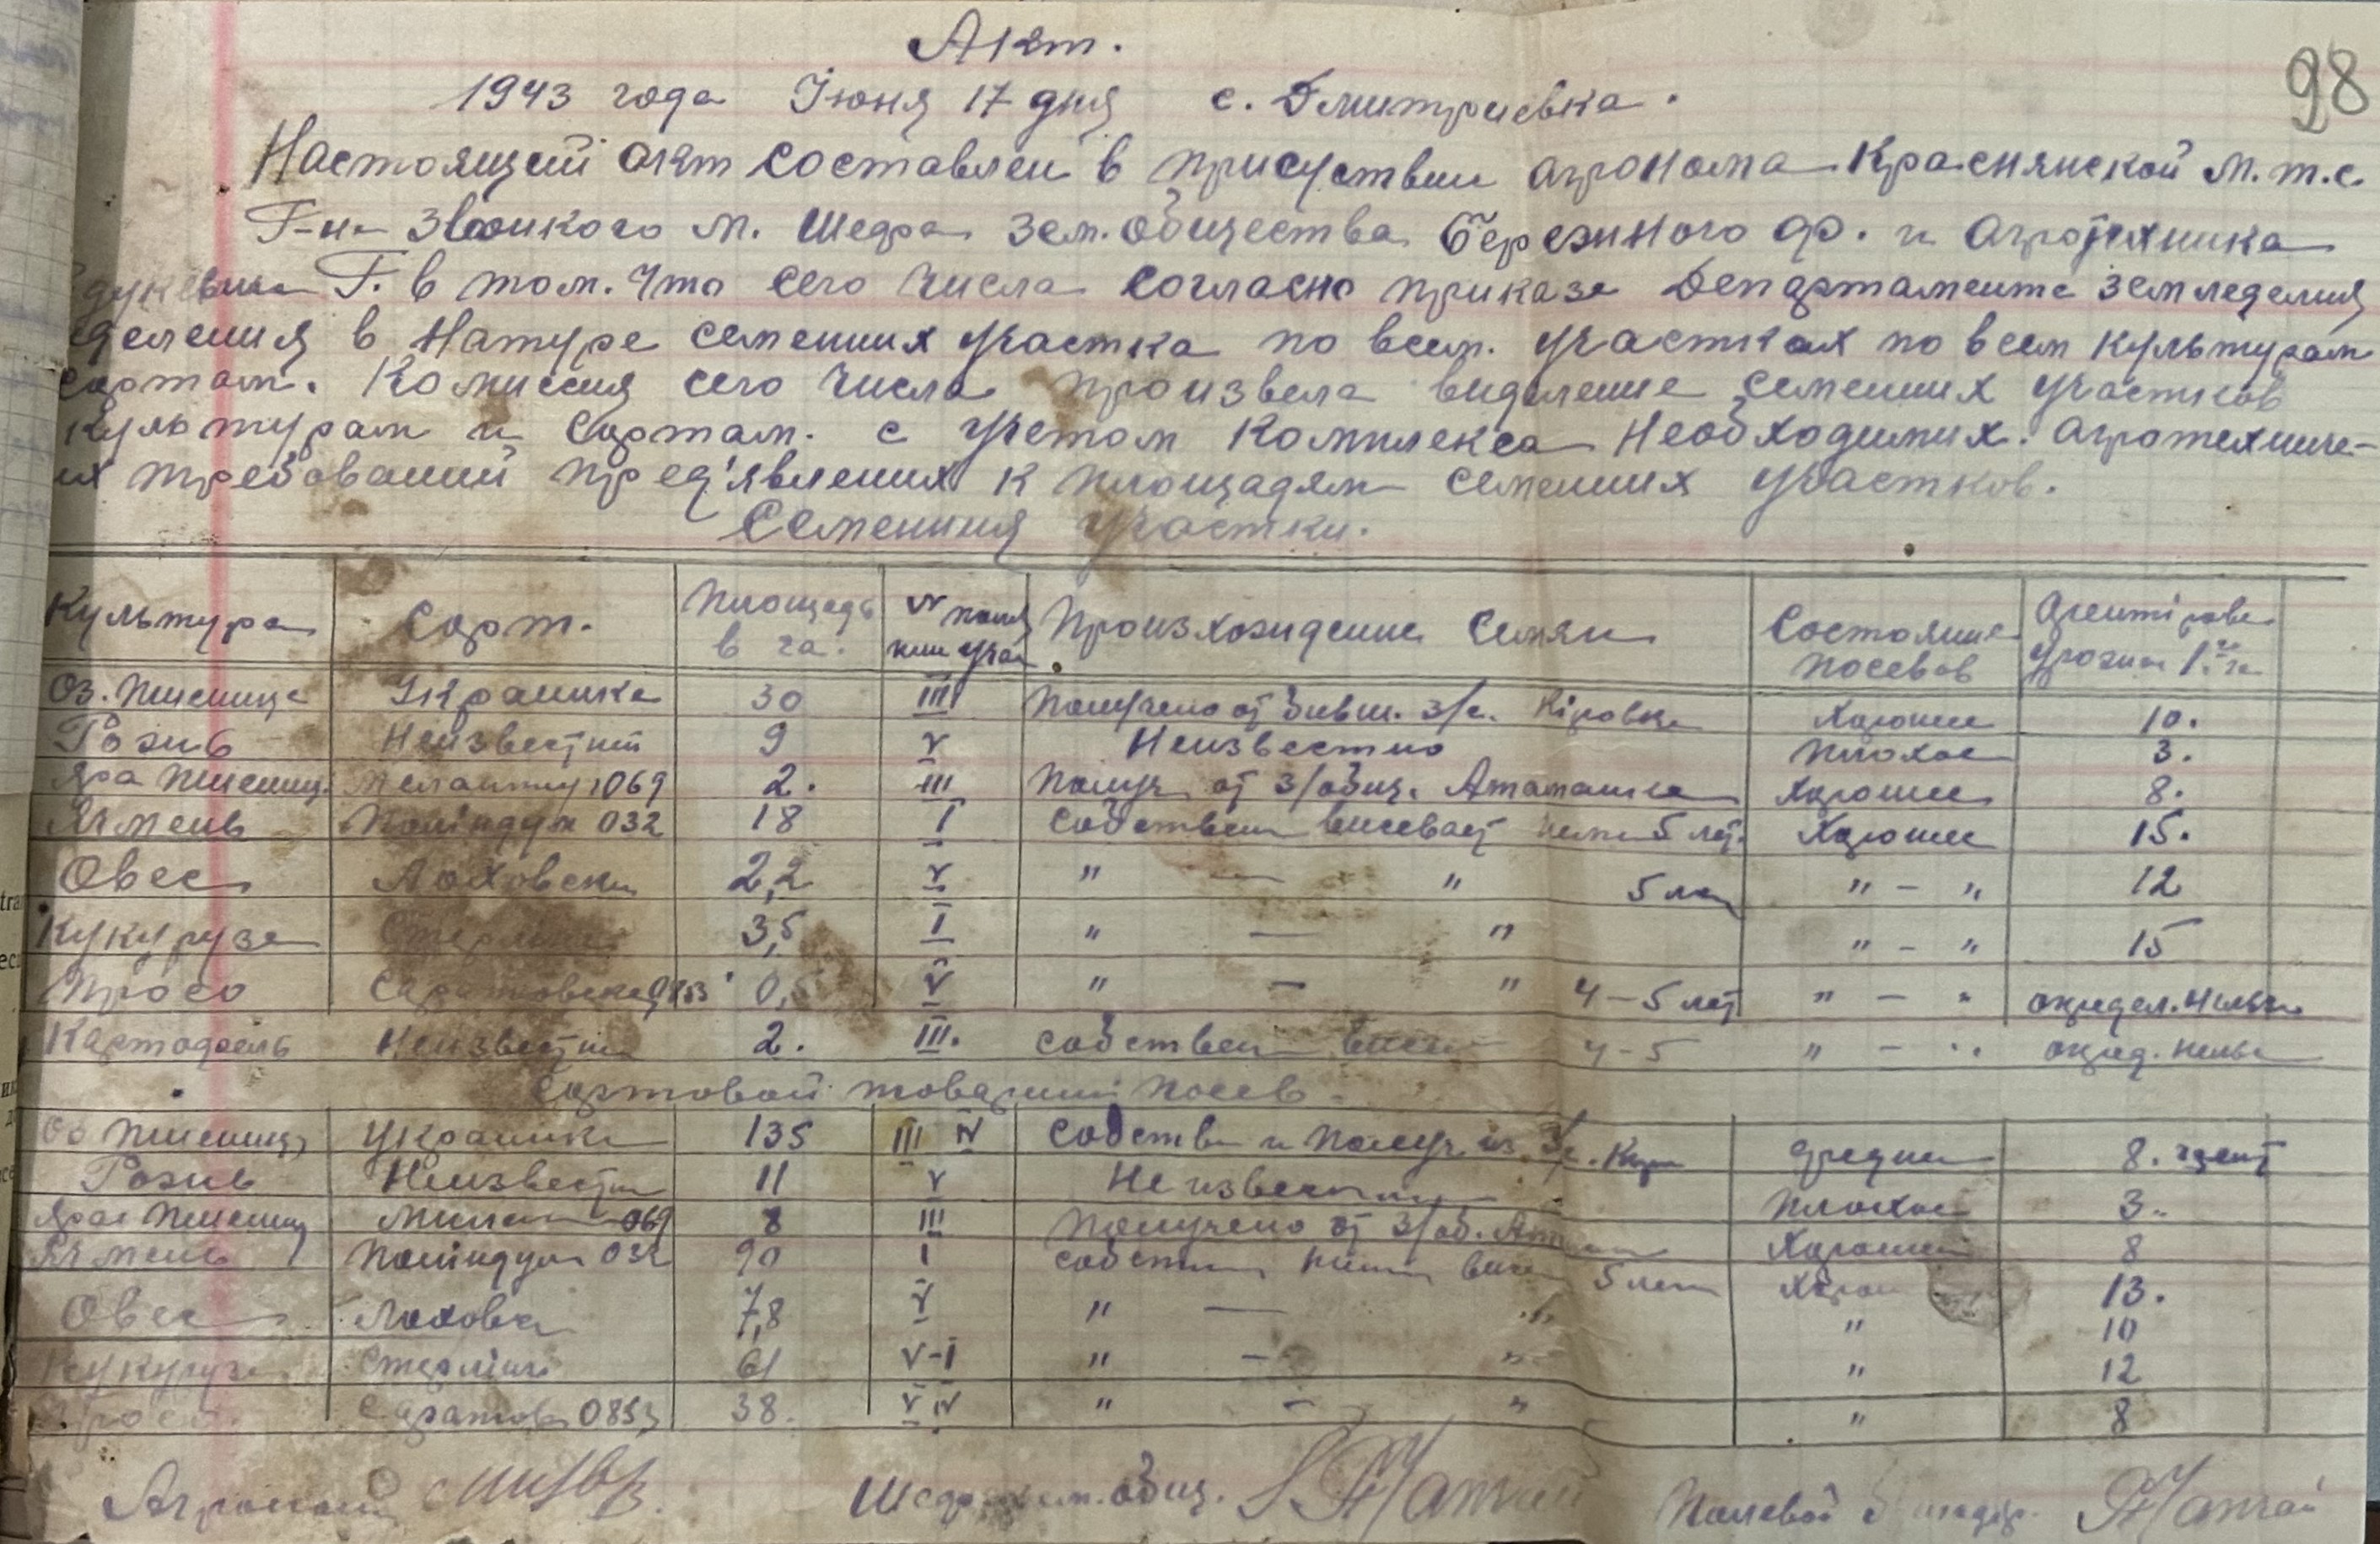 98
Акт.
1943 года Июня 17 дня с. Дмитриевка.
Настоящий акт составлен в присуствии агронома Краснянской М.т.с.
Г-на М. Шефа зем. общества Бережного ф. и агротехника
Г. в том. что сего числа согласно приказа Департамента земледелия
деления в натуре семенних участка по всем. участках по всем культурам
сортам. Комиссия сего числа произвела виделение семенних участков
культурам и сортам. с учетом комплекса необходимих. агротехниче-
их требований пред'явлених к площадям семенних участков.
Семенния участки.
Культура Сорт. Площадь в га. № поля или учас Произхождение Семян Состояние посевов урожая 1 га
Оз. Пшеница Украинка 30 III Получено от бивш. з/с. Кіровка Хорошее 10.
Рожь Неизвестний 9 V Неизвестно Плохое 3.
Яра пшениц. 069 2. III Получ. от з/общ. Атаманка Хорошее 8.
Ячмень Палідум 032 18 I Собствен висевает 5 лет. Хорошее 15.
Овес Лоховски 2,2 V " — " 5 лет " - " 12
Кукуруза Стерлинг 3,5 I " — " " - " 15
Просо Саратовское 0853 0,5 V " — " 4-5 лет " - " определ. нельзя
Картофель Неизвестний 2. III. собствен 4-5 " - " опред. нельзя
Сортовой товарний посев.
Оз Пшениц Украинка 135 III IV Собствен и получ. из з/с. Средние 8. цент
Рожь Неизвестни 11 V Не известно Плохое 3.
Ярая Пшениц 069 8 III Получено от з/об. Хороший 8
Ячмень Палідум 032 90 I собствен 5 лет Хорош 13.
Овес Лоховск 7,8 V " — " " 10
Кукуруза Стерлінг 61 V-I " — " " 12
Просо. Саратов 0853 38. V IV " - " " 8
Агроном Шеф зем. общ. Полевой